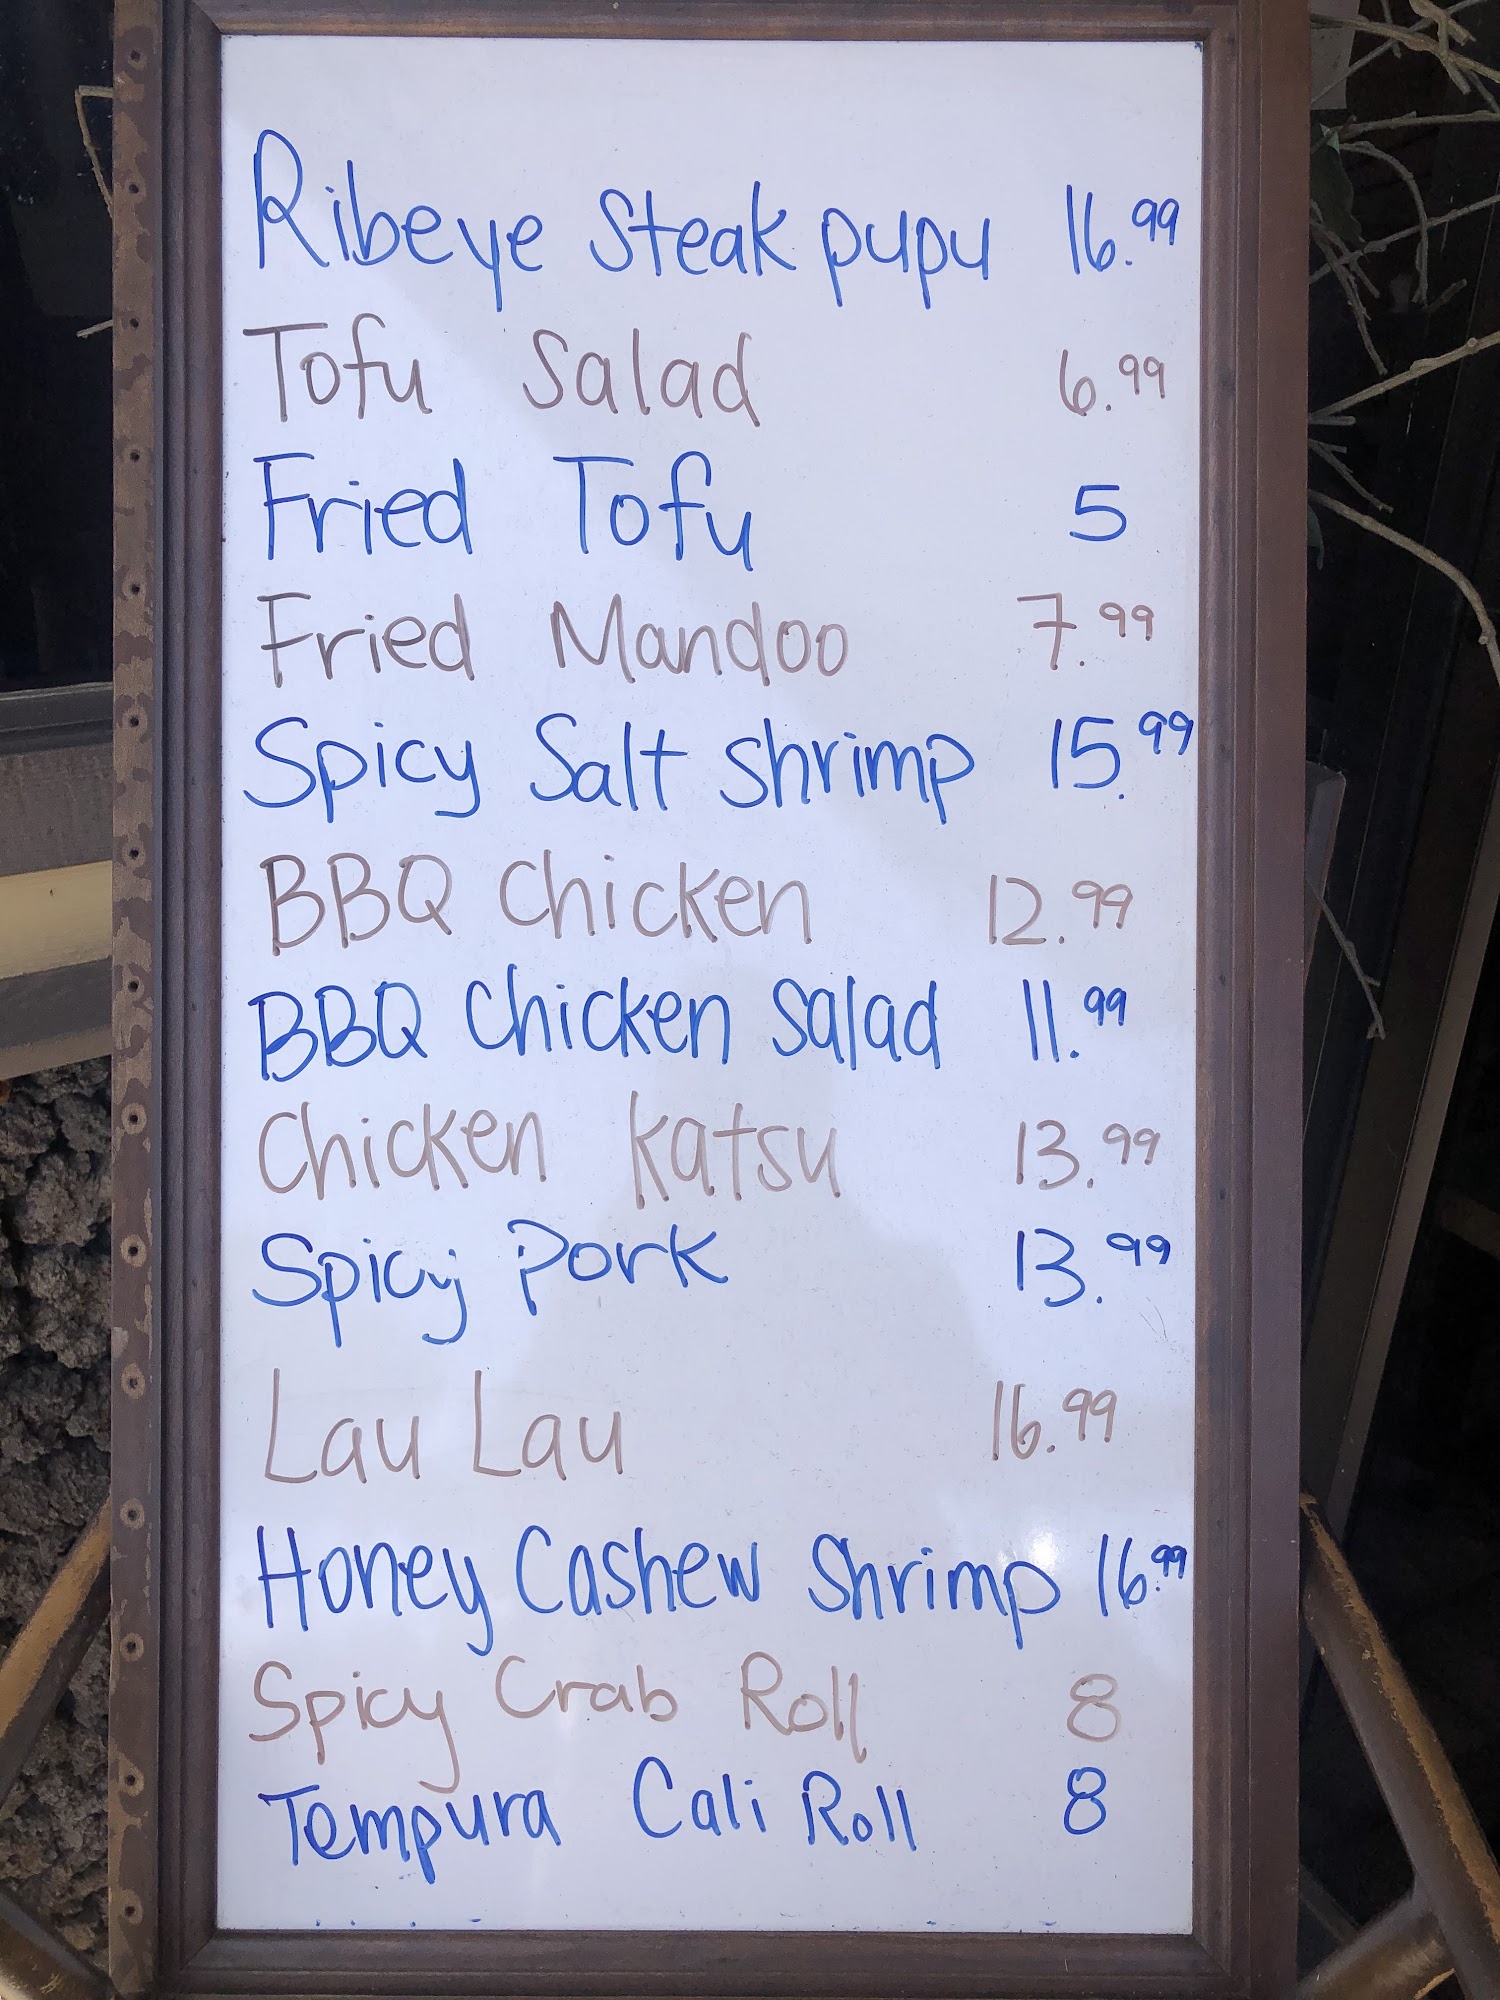 Ribeye Steak pupu 16.99
Tofu Salad 6.99
Fried Tofu 5
Fried Mandoo 7.99
Spicy Salt Shrimp 15.99
BBQ Chicken 12.99
BBQ Chicken Salad 11.99
Chicken Katsu 13.99
Spicy Pork 13.99
Lau Lau 16.99
Honey Cashew Shrimp 16.99
Spicy Crab Roll 8
Tempura Cali Roll 8